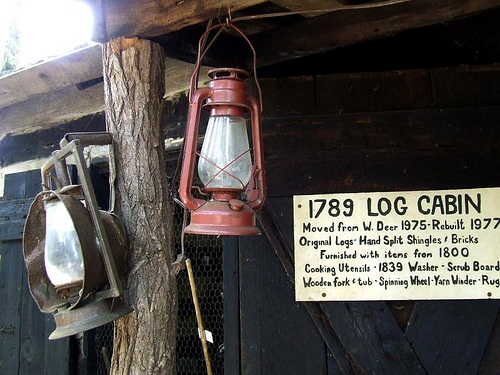 1789 LOG CABIN
Moved from W. Deer 1975-Rebuilt 1977
Original Logs-Hand Split Shingles & Bricks
Furnished with items from 1800
Cooking Utensils-1839 Washer-Scrub Board
Wooden fork & tub-Spinning Wheel-Yarn Winder-Rug